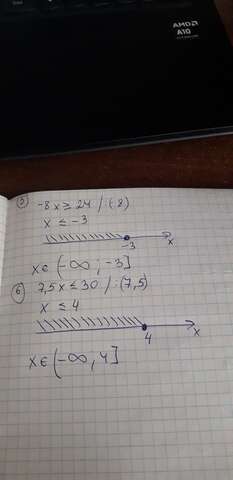 AMD
A10
5) -8x ≥ 24 /:(-8)
x ≤ -3
-3 x
x∈(-∞; -3]
6) 7,5x ≤ 30 /:(7,5)
x ≤ 4
4 x
x∈(-∞, 4]